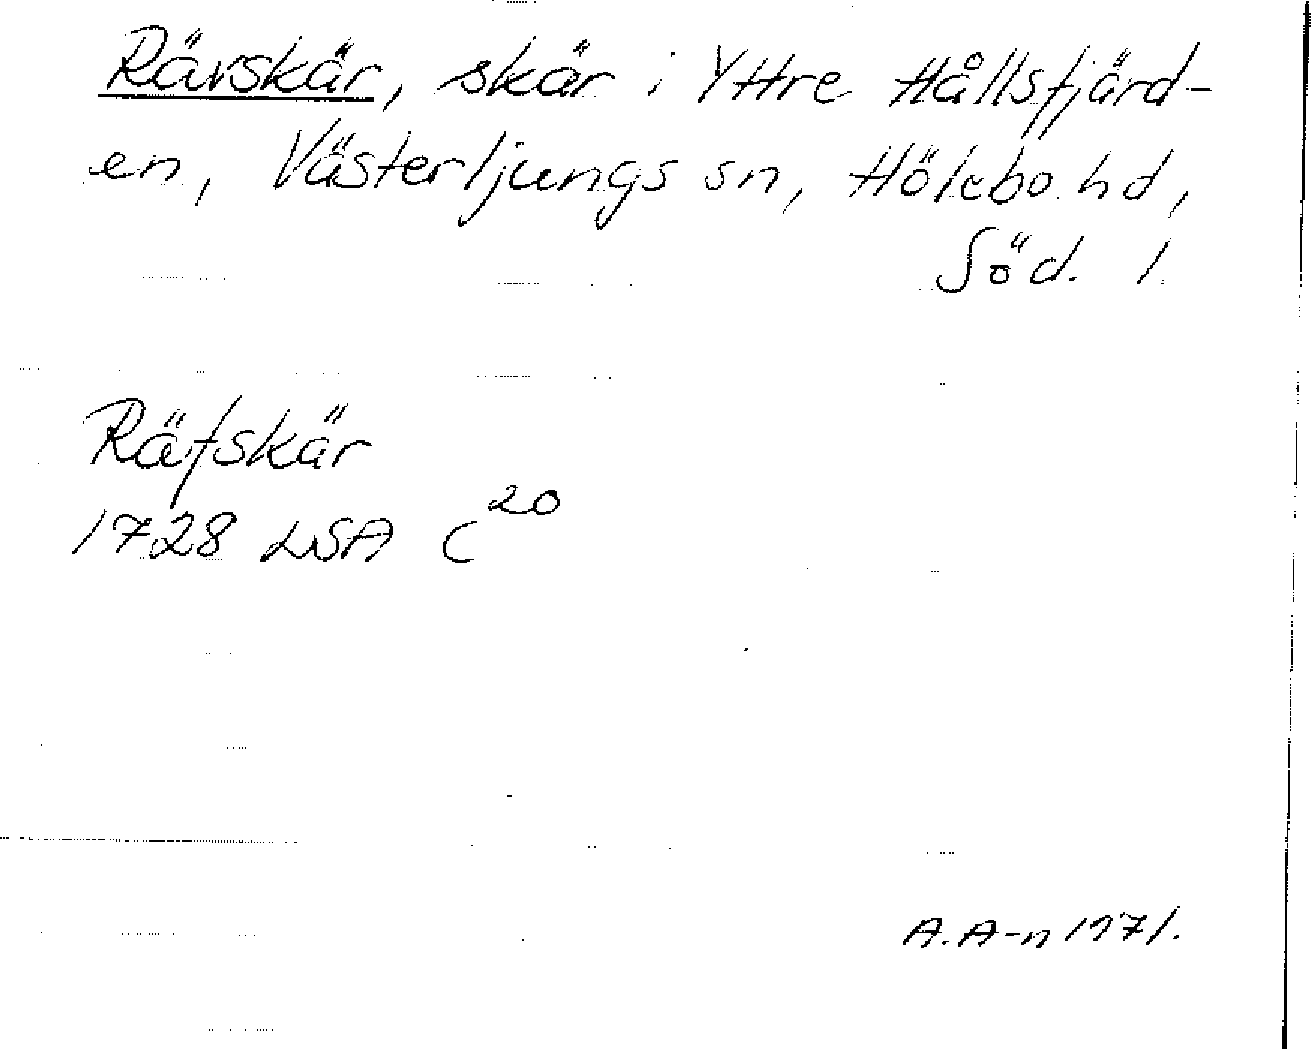 Rävskär, skär i Yttre Hållsfjärd-
en, Västerljungs sn, Hölebo hd,
Söd. l.
Räfskär
1728 LSA C 20
A. A-n 1971.